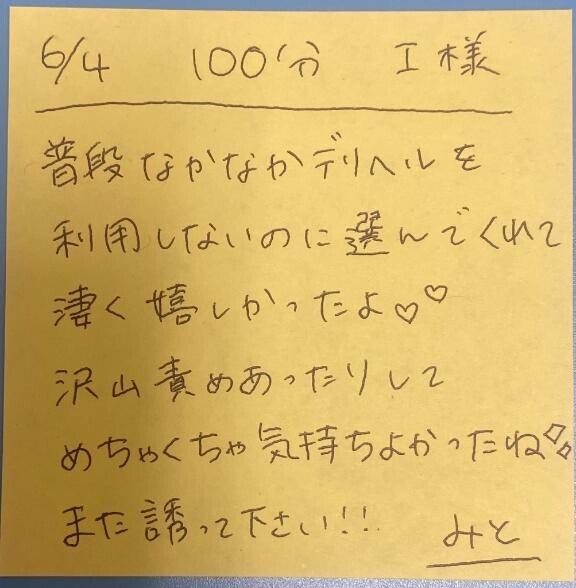 6/4 100分 I様
普段なかなかデリヘルを
利用しないのに選んでくれて
凄く嬉しかったよ♡♡
沢山責めあったりして
めちゃくちゃ気持ちよかったね
また誘って下さい!!
みと